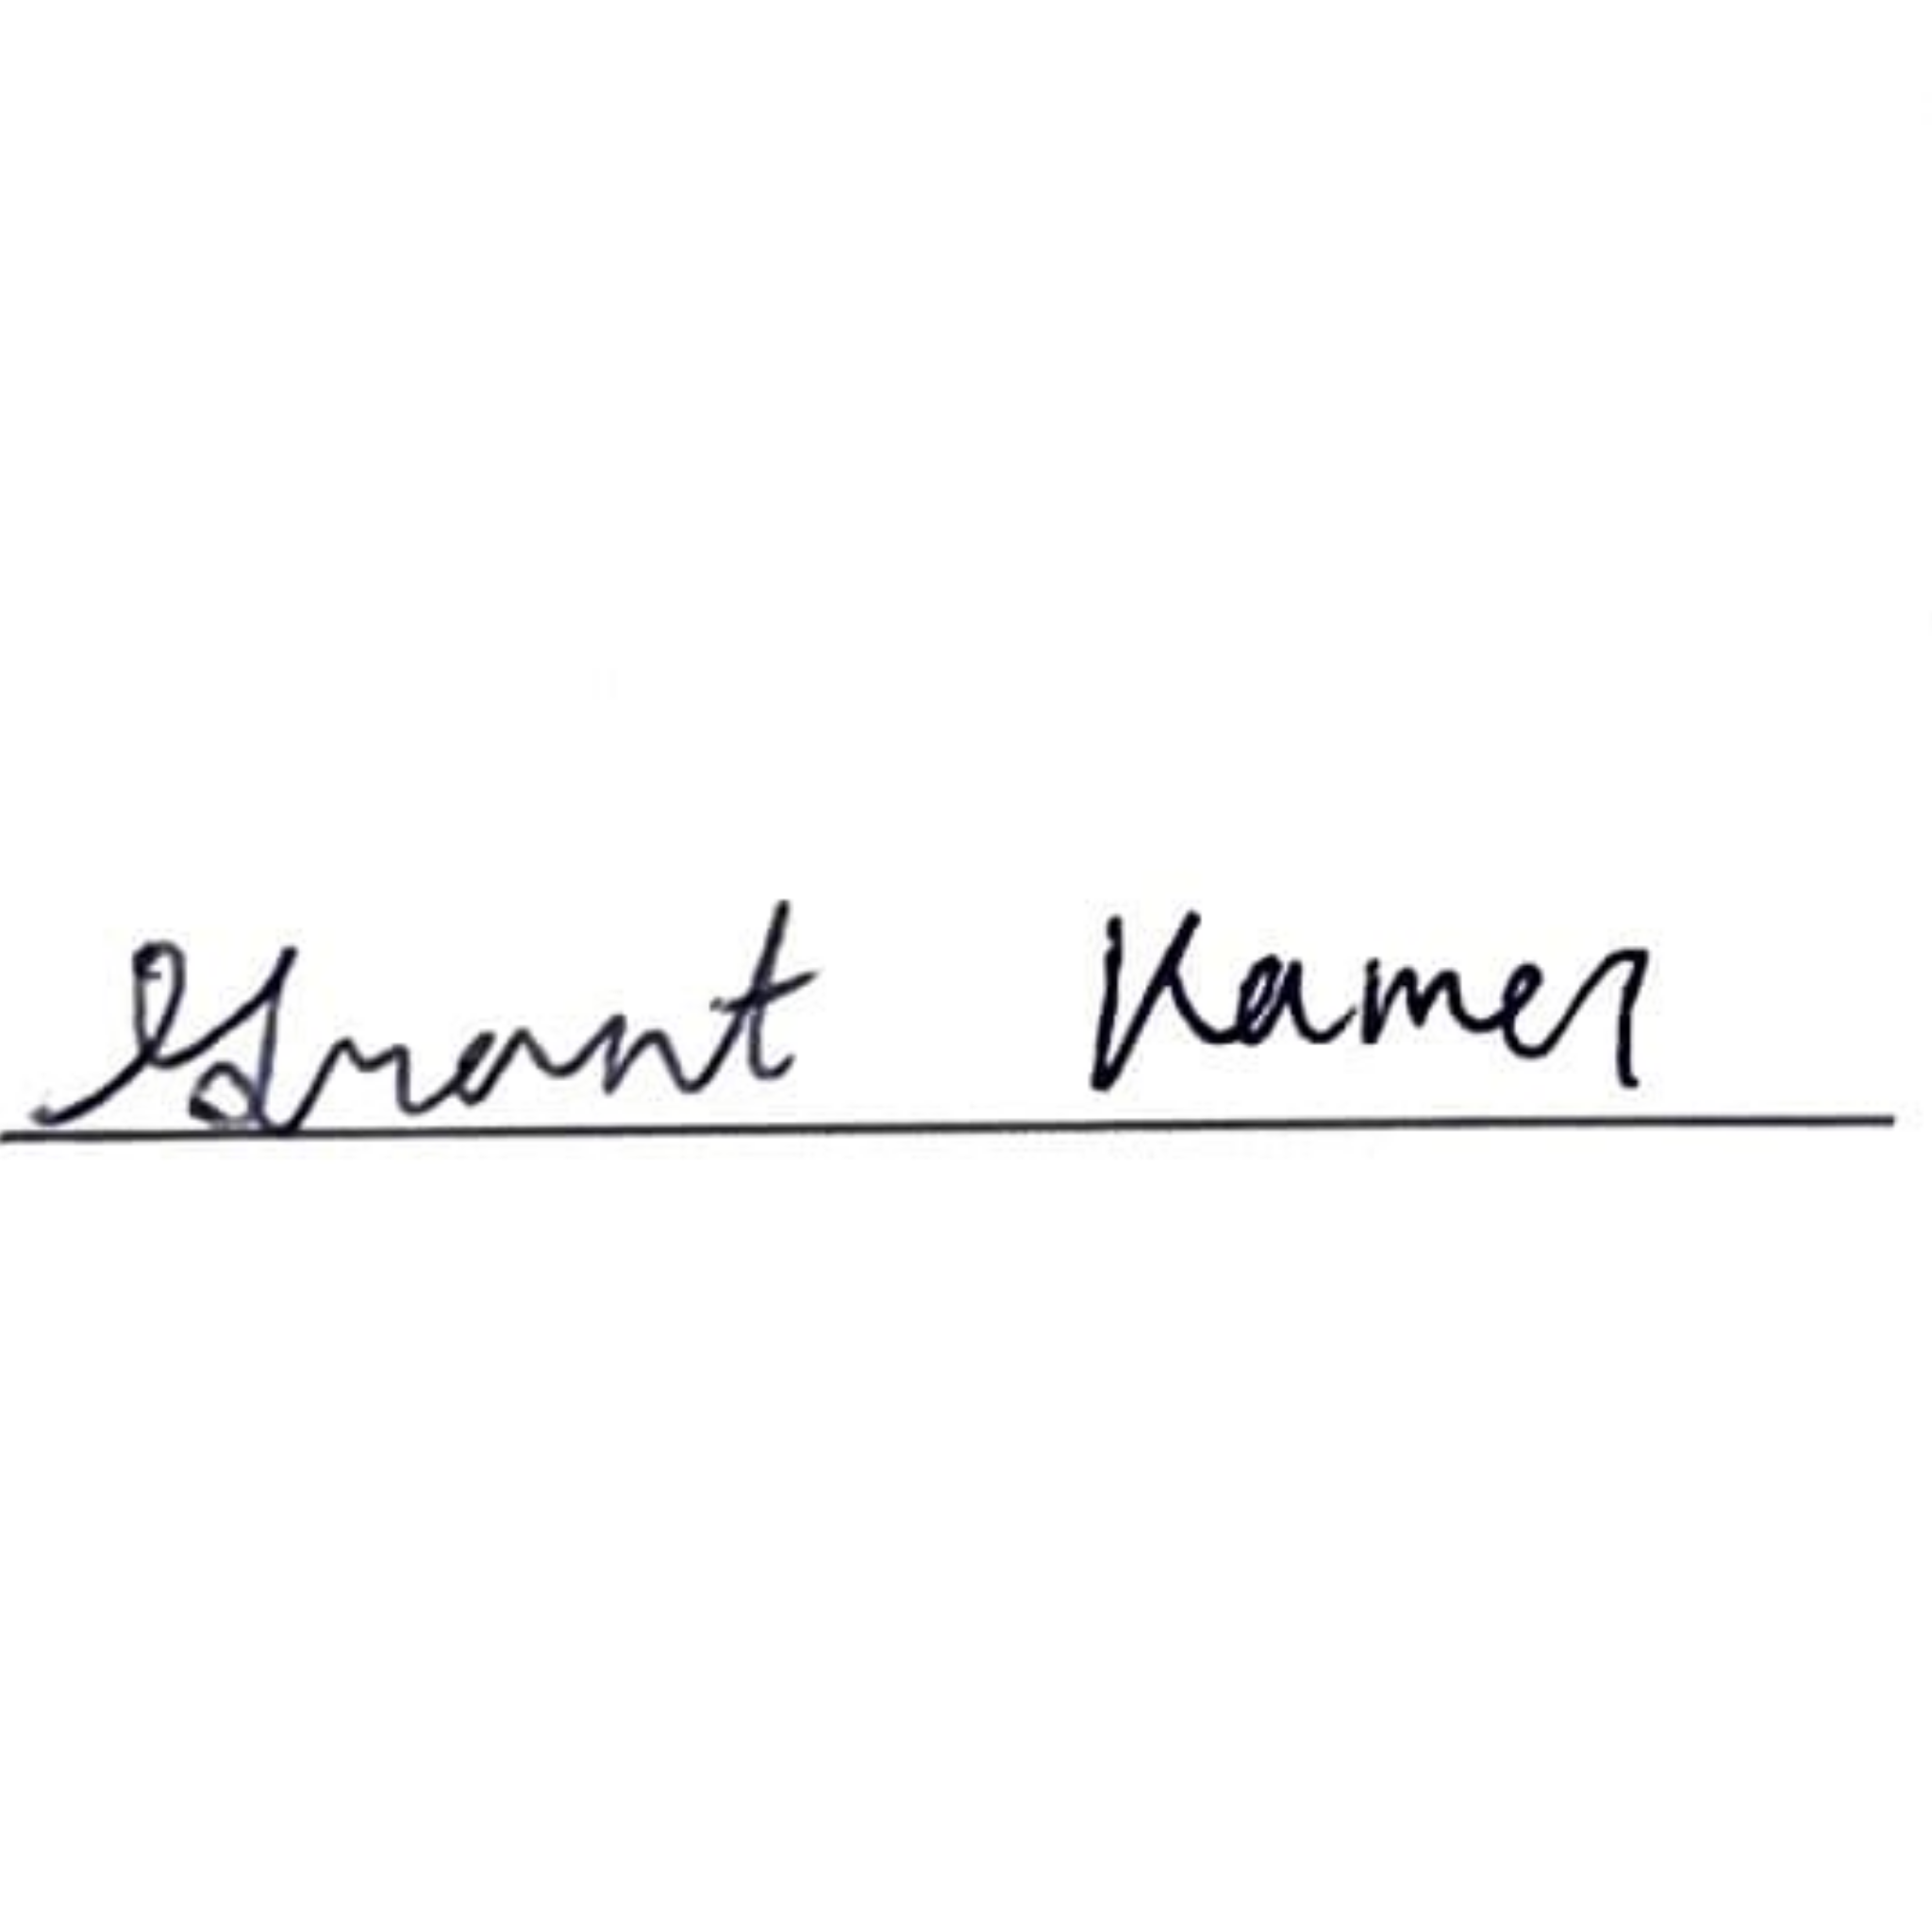 Grant Kamer